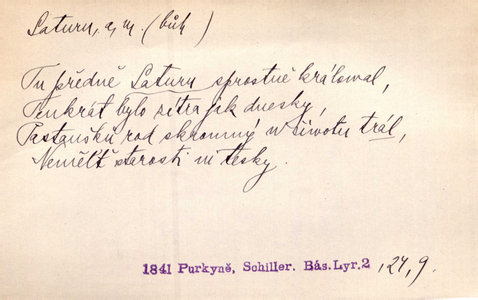 Saturn, a, m. (bůh)
Tu předně Saturn sprostně králowal,
Tenkrát bylo zítra jak dnesky,
Pastaušků rod skromný w životu trál,
Neměltě starosti ni tesky.
1841 Purkyně, Schiller. Bás. Lyr. 2, 124, 9.